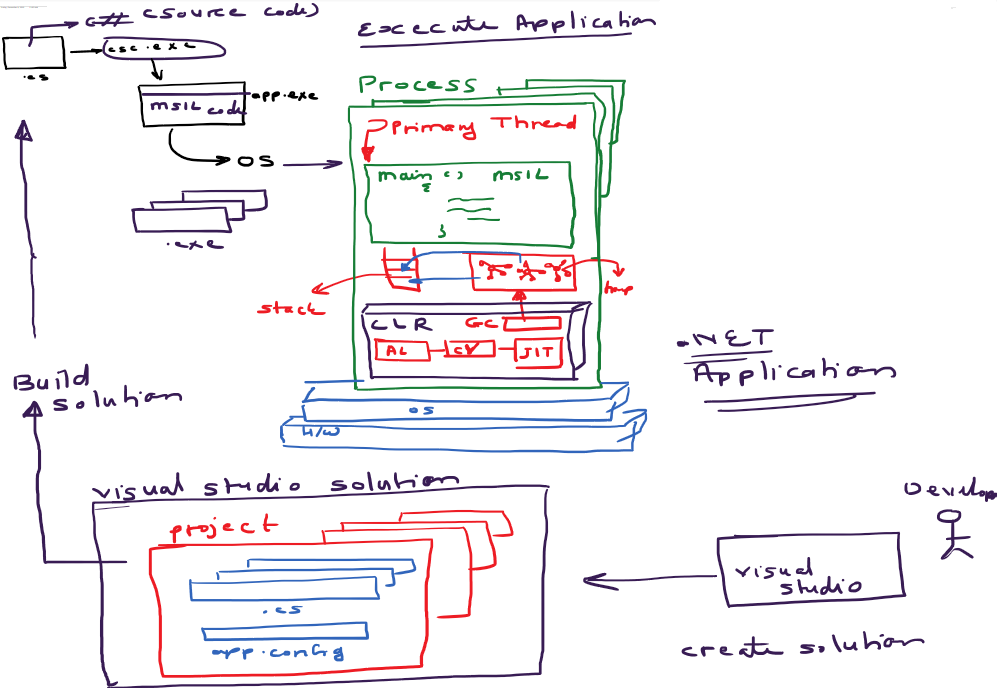 C# (source code)
.cs
csc.exe
app.exe
MSIL code
OS
.exe
Excecute Application
Process
Primary Thread
main () MSIL
{
}
stack
heap
CLR
GC
AL
CV
JIT
OS
H/W
.NET
Application
Build
solution
visual studio solution
project
.cs
app.config
Develop
visual
studio
create solution